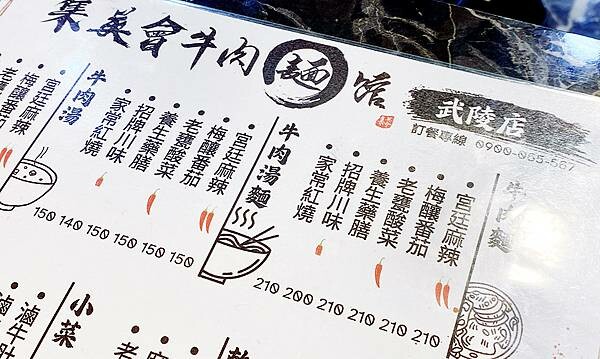 集英會牛肉麵館
武陵店
訂餐專線 0900-065-567
牛肉麵
牛肉湯麵
宮廷麻辣
梅釀番茄
老甕酸菜
養生藥膳
招牌川味
家常紅燒
210 200 210 210 210 210
牛肉湯
宮廷麻辣
梅釀番茄
老甕酸菜
養生藥膳
招牌川味
家常紅燒
150 140 150 150 150 150
宮廷麻辣
梅釀番茄
小菜
滷牛肚